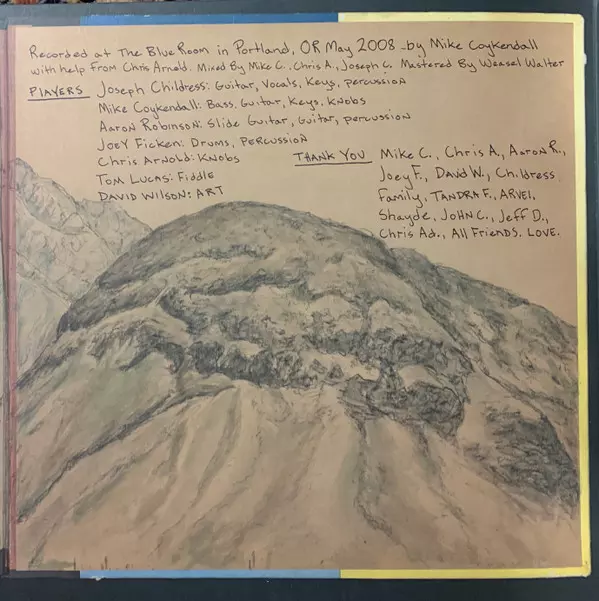 Recorded at The Blue Room in Portland, OR May 2008 - by Mike Coykendall
with help from Chris Arnold. Mixed By Mike C., Chris A., Joseph C. Mastered By Weasel Walter
PLAYERS Joseph Childress: Guitar, Vocals, Keys, percussion
Mike Coykendall: Bass, Guitar, Keys, Knobs
Aaron Robinson: Slide Guitar, Guitar, percussion
Joey Ficken: Drums, Percussion
Chris Arnold: Knobs
Tom Lucas: Fiddle
David Wilson: ART
THANK YOU Mike C., Chris A., Aaron R.,
Joey F., David W., Childress
Family, TANDRA F., ARVEL,
Shayde, JOHN C., Jeff D.,
Chris Ad., All Friends. LOVE.